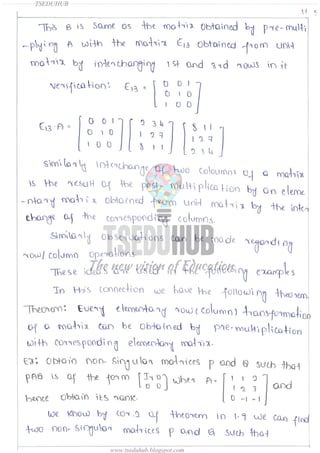 TSEDUHUB
This B is same as the matrix obtained by pre-multi
-plying A with the matrix E13 obtained from unit
matrix by interchanging 1st and 3rd rows in it
Verification: E13 = [ 0 0 1
0 1 0
1 0 0 ]
E13 A = [ 0 0 1 ] [ 2 3 4 ] [ 8 1 1 ]
[ 0 1 0 ] [ 1 2 7 ] [ 1 2 7 ]
[ 1 0 0 ] [ 8 1 1 ] [ 2 3 4 ]
Similarly interchange of two coloumns of a matrix
is the result of the post-multiplication by an eleme
-ntary matrix obtained from unit matrix by the inter
change of the corresponding columns.
Similarly observations can be made regarding
row/column operations
These ideas are in the following examples
In this connection we have the following theorem
Theorem: Every elementary row(column) transformation
of a matrix can be obtained by pre-multiplication
with corresponding elementary matrix.
Ex: Obtain non-singular matrices P and Q such that
PAQ is of the form [ Ir 0 ] where A = [ 1 1 2 ] and
[ 0 0 ] [ 1 2 3 ]
hence obtain its rank. [ 0 -1 -1 ]
We know by cor.2 of theorem in 1.9 we can find
two non-singular matrices P and Q such that
TSEDUHUB
The new vision of Education
www.tseduhub.blogspot.com